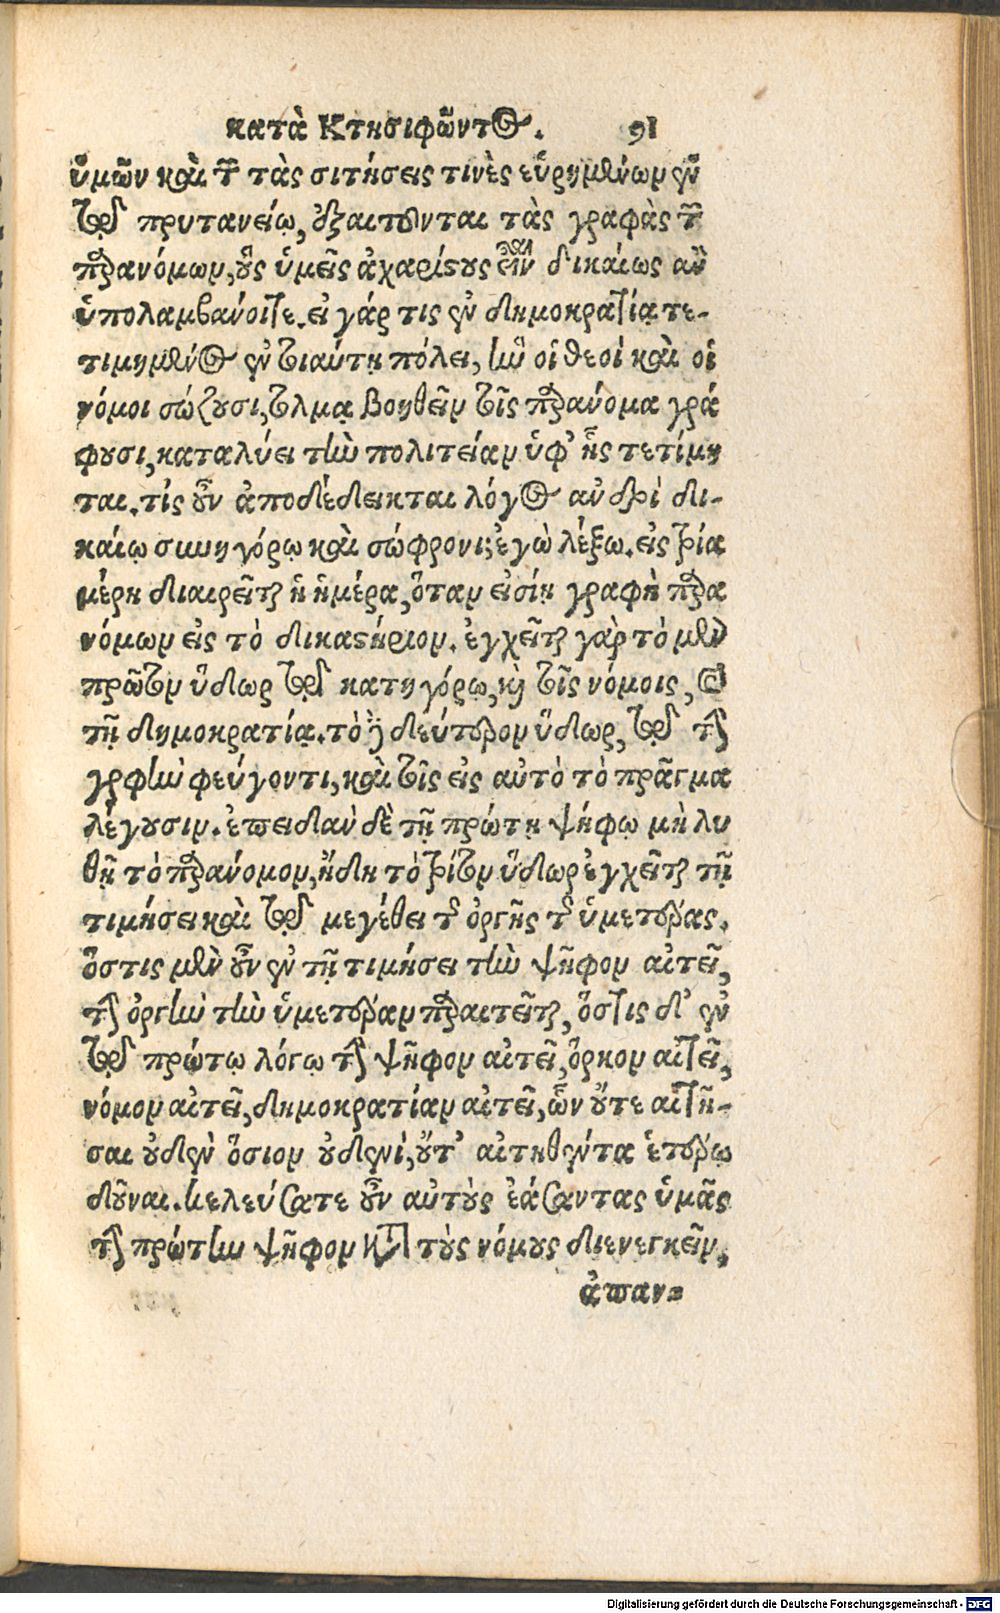 κατὰ Κτησιφῶντος. 91
ὑμῶν καὶ τῶν τὰς σιτήσεις τινὲς εὑρημένων ἐν
τῷ πρυτανείῳ, ἐξαιτοῦνται τὰς γραφὰς τῶν
παρανόμων, οὓς ὑμεῖς ἀχαρίστους εἶναι δικαίως ἂν
ὑπολαμβάνοιτε. εἰ γάρ τις ἐν δημοκρατίᾳ τε-
τιμημένος ἐν τοιαύτῃ πόλει, ἣν οἱ θεοὶ καὶ οἱ
νόμοι σώζουσι, τολμᾷ βοηθεῖν τοῖς παράνομα γρά
φουσι, καταλύει τὴν πολιτείαν ὑφ' ἧς τετίμη
ται. τίς οὖν ἀποδέδεικται λόγος ἀνδρὶ δι-
καίῳ συνηγόρῳ καὶ σώφρονι; ἐγὼ λέξω. εἰς τρία
μέρη διαιρεῖται ἡ ἡμέρα, ὅταν εἰσίῃ γραφὴ παρα
νόμων εἰς τὸ δικαστήριον. ἐγχεῖται γὰρ τὸ μὲν
πρῶτον ὕδωρ τῷ κατηγόρῳ, καὶ τοῖς νόμοις, καὶ
τῇ δημοκρατίᾳ. τὸ δὲ δεύτερον ὕδωρ, τῷ τὴν
γραφὴν φεύγοντι, καὶ τοῖς εἰς αὐτὸ τὸ πρᾶγμα
λέγουσιν. ἐπειδὰν δὲ τῇ πρώτῃ ψήφῳ μὴ λυ
θῇ τὸ παράνομον, ἤδη τὸ τρίτον ὕδωρ ἐγχεῖται τῇ
τιμήσει καὶ τῷ μεγέθει τῆς ὀργῆς τῆς ὑμετέρας.
ὅστις μὲν οὖν ἐν τῇ τιμήσει τὴν ψῆφον αἰτεῖ,
τὴν ὀργὴν τὴν ὑμετέραν παραιτεῖται, ὅστις δ' ἐν
τῷ πρώτῳ λόγῳ τὴν ψῆφον αἰτεῖ, ὅρκον αἰτεῖ,
νόμον αἰτεῖ, δημοκρατίαν αἰτεῖ, ὧν οὔτε αἰτῆ-
σαι οὐδὲν ὅσιον οὐδενί, οὔτ' αἰτηθέντα ἑτέρῳ
δοῦναι. κελεύσατε οὖν αὐτοὺς ἐάσαντας ὑμᾶς
τὴν πρώτην ψῆφον κατὰ τοὺς νόμους διενεγκεῖν,
ἀπαν-
Digitalisierung gefördert durch die Deutsche Forschungsgemeinschaft - DFG